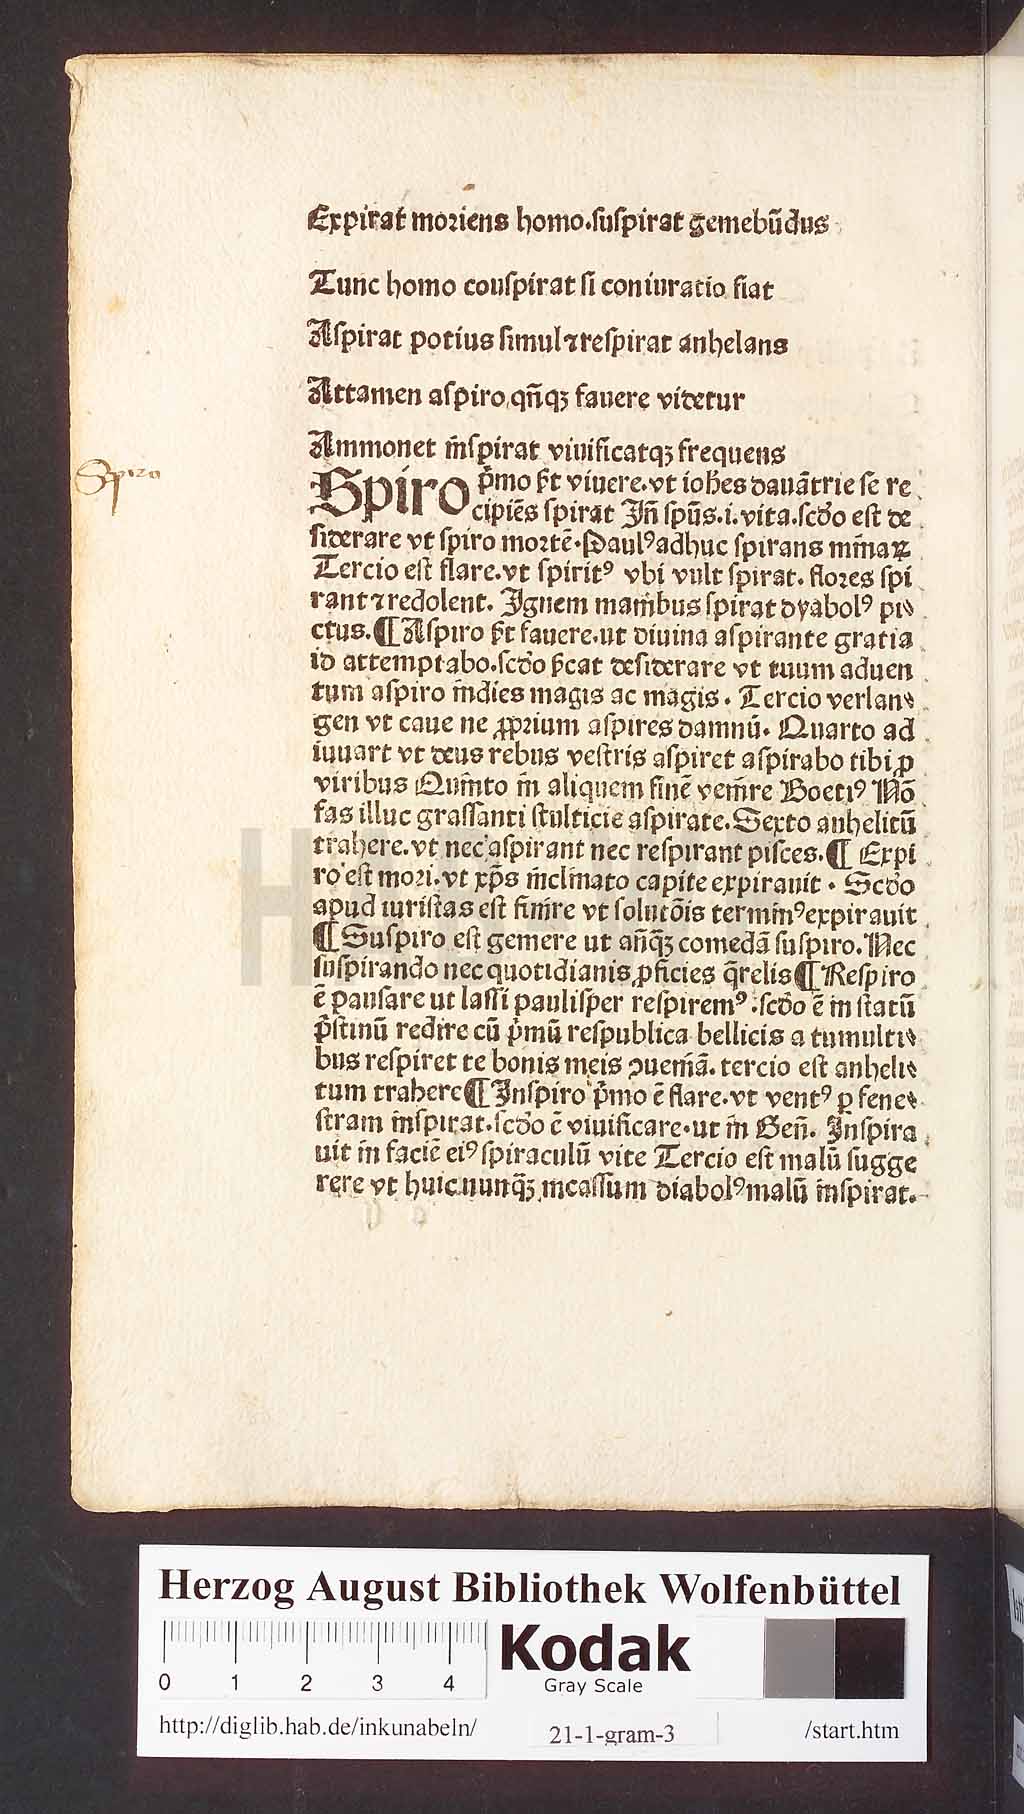 Expirat moriens homo.suspirat gemebūdus
Tunc homo conspirat si coniuratio fiat
Aspirat potius simul ⁊ respirat anhelans
Attamen aspiro qn̄qꝫ fauere videtur
Ammonet inspirat viuificatqꝫ frequens
Spiro
Spiro p̄mo est viuere.vt
se re
cipiēs spirat Jn̄ spūs.i.vita.scd̄o est de
siderare vt spiro mortē.Paulꝰ adhuc spirans minaꝝ
Tercio est flare.vt spiritꝰ vbi vult spirat. flores spi
rant ⁊ redolent. Jgnem manibus spirat dyabolꝰ pi
ctus.¶ Aspiro fauere.ut diuina aspirante gratia
id attemptabo.scd̄o desiderare vt tuum aduen
tum aspiro indies magis ac magis. Tercio verlan
gen vt caue ne ꝓprium aspires damnū. Quarto ad
iuuart vt deus rebus vestris aspiret aspirabo tibi ꝓ
viribus Quinto in aliquem finē venire Boetiꝰ Nō
fas illuc grassanti stulticie aspirate. Sexto anhelitū
trahere.vt nec aspirant nec respirant pisces.¶ Expi
ro est mori.vt xp̄s inclinato capite expirauit. Scd̄o
apud iuristas est finire vt solutōis terminꝰ expirauit
¶ Suspiro est gemere ut an̄qꝫ comedā suspiro. Nec
suspirando nec quotidianis ꝓficies q̄relis ¶ Respiro
ē pausare ut lassi paulisper respiremꝰ .scd̄o ē in statū
p̄stinū redire cū p̄mū respublica bellicis a tumulti
bus respiret te bonis meis ꝯuemā. tercio est anheli
tum trahere ¶ Jnspiro p̄mo ē flare.vt ventꝰ ꝑ fene
stram inspirat.scd̄o ē viuificare.ut in Gen̄. Jnspira
uit in faciē eiꝰ spiraculū vite Tercio est malū sugge
rere vt huic nunqꝫ incassum diabolꝰ malū inspirat.
HAB
Herzog August Bibliothek Wolfenbüttel
0 1 2 3 4
Kodak
Gray Scale
http://diglib.hab.de/inkunabeln/ 21-1-gram-3 /start.htm